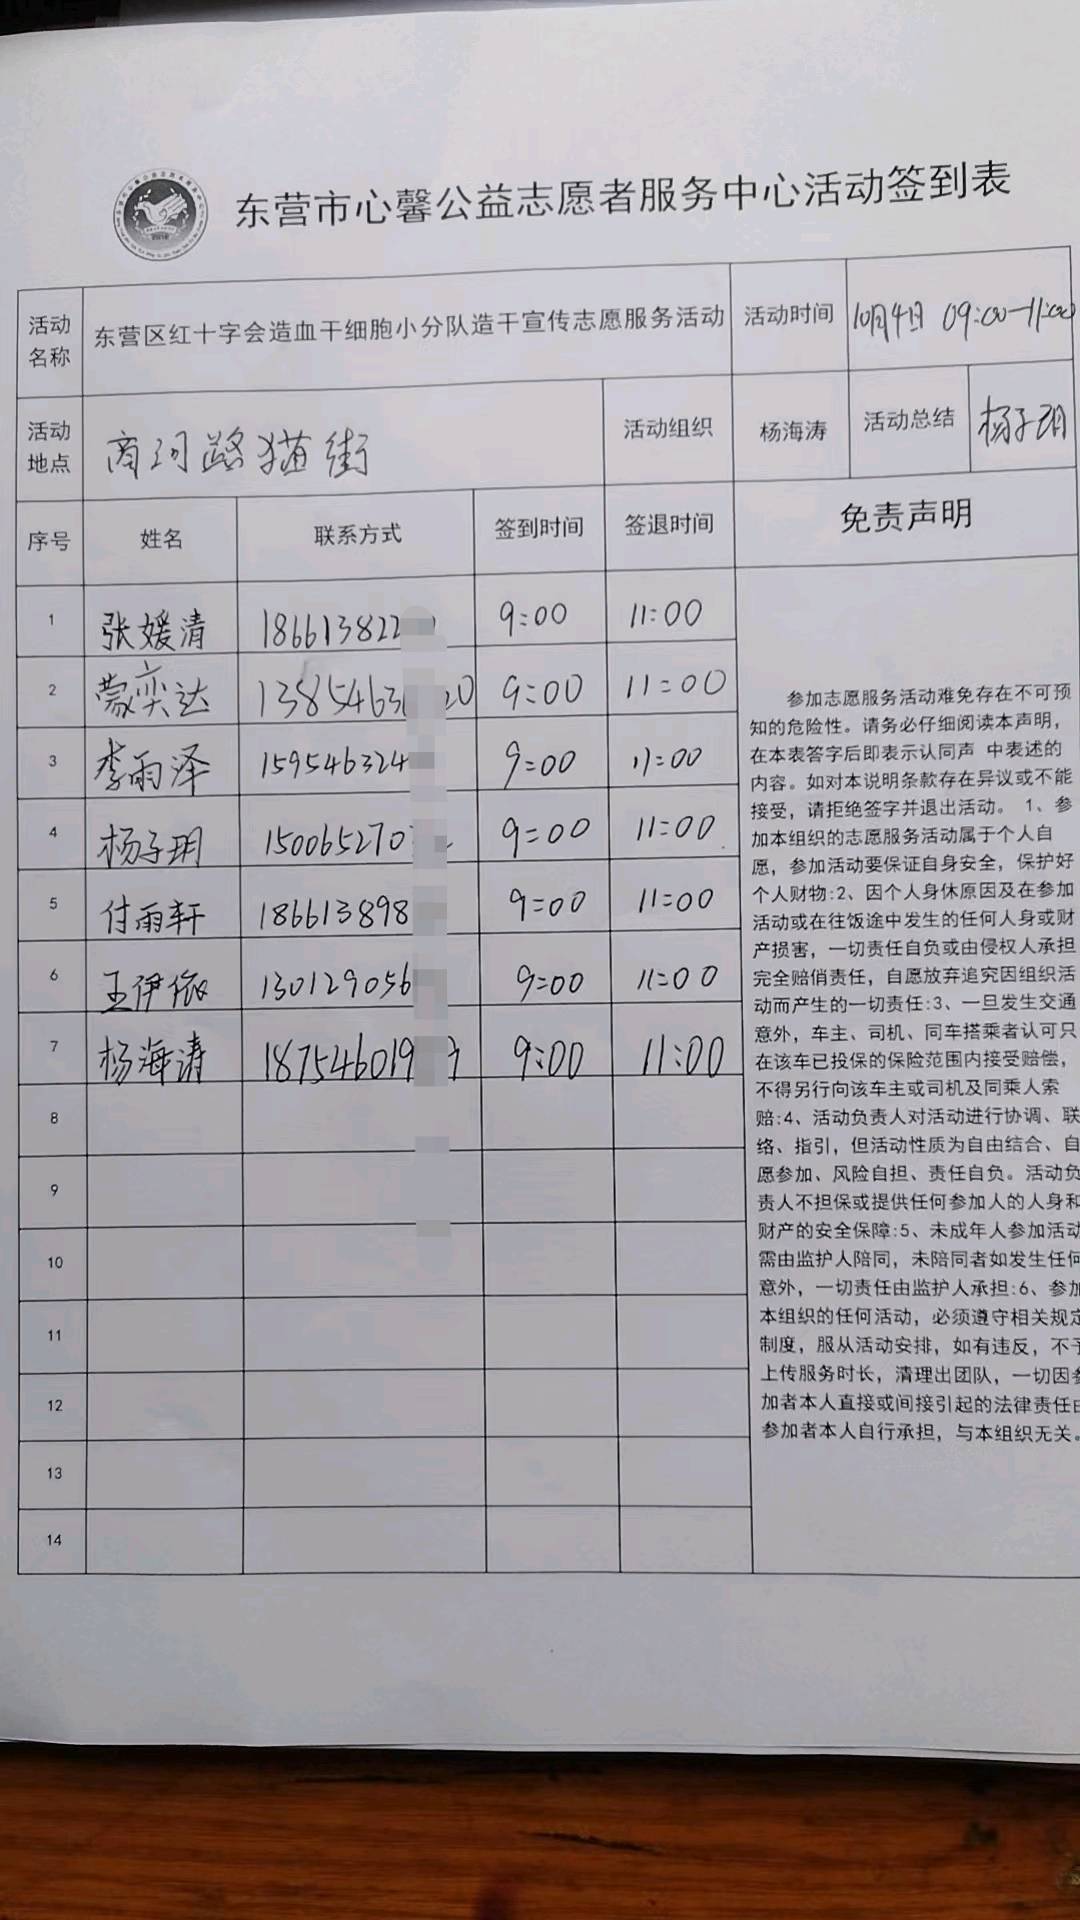 东营市心馨公益志愿者服务中心活动签到表
活动名称 东营区红十字会造血干细胞小分队造干宣传志愿服务活动 活动时间 10月4日 09:00-11:00
活动地点 商河路猫街 活动组织 杨海涛 活动总结 杨子玥
序号 姓名 联系方式 签到时间 签退时间 免责声明
1 张媛清 186613822 9:00 11:00
2 蒙奕达 1385463 20 9:00 11:00
3 李雨泽 159546324 9:00 11:00
4 杨子玥 150065270 9:00 11:00
5 付雨轩 186613898 9:00 11:00
6 王伊依 130129056 9:00 11:00
7 杨海涛 187546019 9:00 11:00
8
9
10
11
12
13
14
参加志愿服务活动难免存在不可预
知的危险性。请务必仔细阅读本声明，
在本表答字后即表示认同声 中表述的
内容。如对本说明条款存在异议或不能
接受，请拒绝签字并退出活动。 1、参
加本组织的志愿服务活动属于个人自
愿，参加活动要保证自身安全，保护好
个人财物:2、因个人身休原因及在参加
活动或在往饭途中发生的任何人身或财
产损害，一切责任自负或由侵权人承担
完全赔俏责任，自愿放弃追究因组织活
动而产生的一切责任:3、一旦发生交通
意外，车主、司机、同车搭乘者认可只
在该车已投保的保险范围内接受赔偿，
不得另行向该车主或司机及同乘人索
赔:4、活动负责人对活动进行协调、联
络、指引，但活动性质为自由结合、自
愿参加、风险自担、责任自负。活动负
责人不担保或提供任何参加人的人身和
财产的安全保障:5、未成年人参加活动
需由监护人陪同，未陪同者如发生任何
意外，一切责任由监护人承担:6、参加
本组织的任何活动，必须遵守相关规定
制度，服从活动安排，如有违反，不予
上传服务时长，清理出团队，一切因参
加者本人直接或间接引起的法律责任由
参加者本人自行承担，与本组织无关。